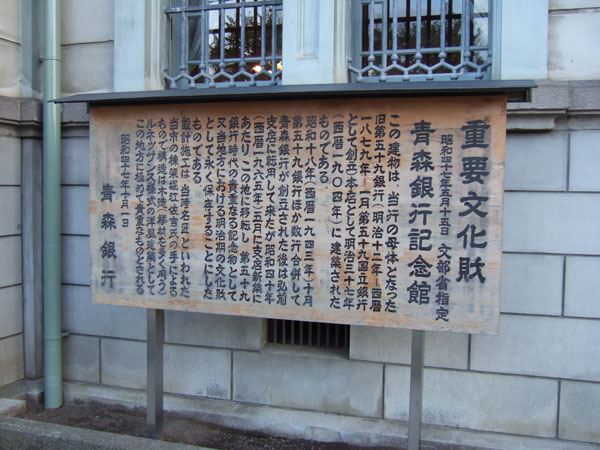 重要文化財
昭和四十七年五月十五日 文部省指定
青森銀行記念館
この建物は、当行の母体となった
旧第五十九銀行（明治十二年＝西暦
一八七九年＝一月第五十九国立銀行
として創立）本店として明治三十七年
（西暦一九〇四年）に建築された
ものである。
昭和十八年（西暦一九四三年）十月
第五十九銀行ほか数行合併して
青森銀行が創立された後は弘前
支店に転用して来たが昭和四十年
（西暦一九六五年）五月に支店新築に
あたり、この地に移転し 第五十九
銀行時代の貴重なる記念物として
又当地方における明治期の文化財
として永く保存することにした
ものである。
設計施工は「当時名匠」といわれた
当市の棟梁堀江佐吉氏の手による
もので構造は木造、欅材を多く用うる
ルネッサンス様式の洋風建築として
この地方に極めて貴重なものとされる
昭和四十七年十月一日
青森銀行